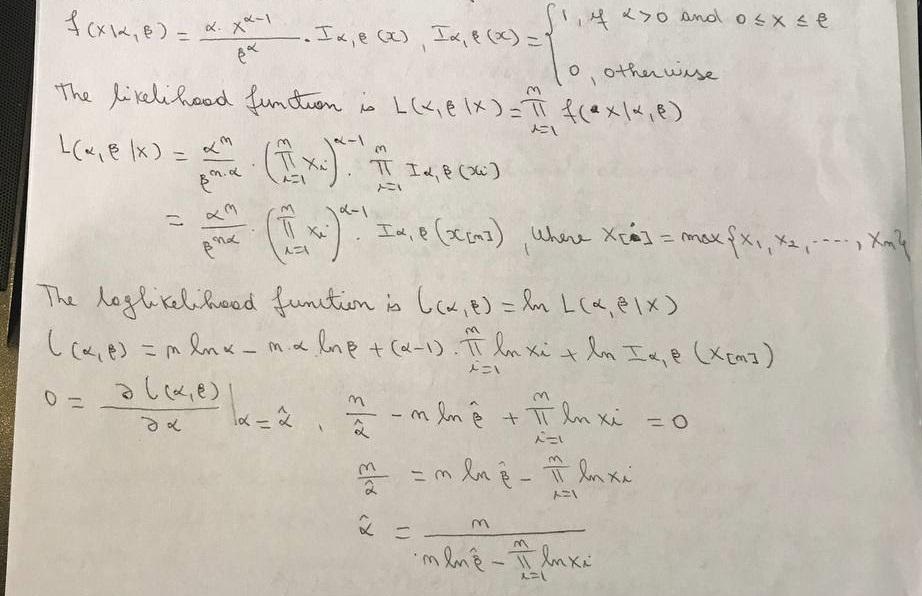 f(x|α,β) = α·x^(α-1)/β^α · I α,β (x) , I α,β (x) = { 1, if α>0 and 0 ≤ x ≤ β
0, otherwise
The likelihood function is L(α,β|x) = ∏_{i=1}^{n} f(x|α,β)
L(α,β|x) = α^n/β^(n·α) · (∏_{i=1}^{n} xi)^(α-1) · ∏_{i=1}^{n} I α,β (xi)
= α^n/β^(nα) · (∏_{i=1}^{n} xi)^(α-1) · I α,β (x[n]) , where x[i] = max{x1, x2, ----, xn}
The loglikelihood function is l(α,β) = ln L(α,β|x)
l(α,β) = n ln α - n·α ln β + (α-1) · ∏_{i=1}^{n} ln xi + ln I α,β (x[n])
0 = ∂l(α,β)/∂α |α=α̂ , n/α̂ - n ln β̂ + ∏_{i=1}^{n} ln xi = 0
n/α̂ = n ln β̂ - ∏_{i=1}^{n} ln xi
α̂ = n/(n ln β̂ - ∏_{i=1}^{n} ln xi)